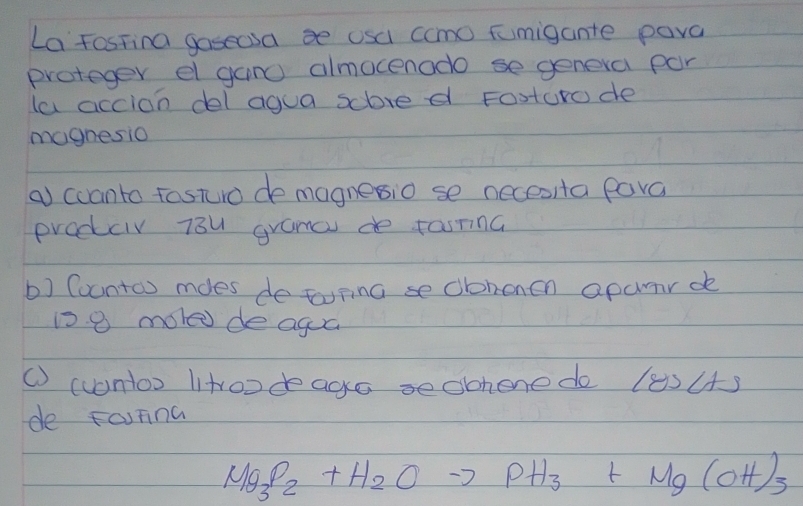 La fosfina gaseosa se usa como fumigante para
proteger el gano almacenado se genera por
la acción del agua sobre el Fosfuro de
magnesio
a) cuanto fosfuro de magnesio se necesita para
producir 734 gramos de fosfina
b) Cuantos moles de fosfina se obtienen apartir de
15.8 moles de agua
c) cuantos litros de agua se obtiene de Lts
de Fosfina
Mg3P2 + H2O -> PH3 + Mg (OH)3